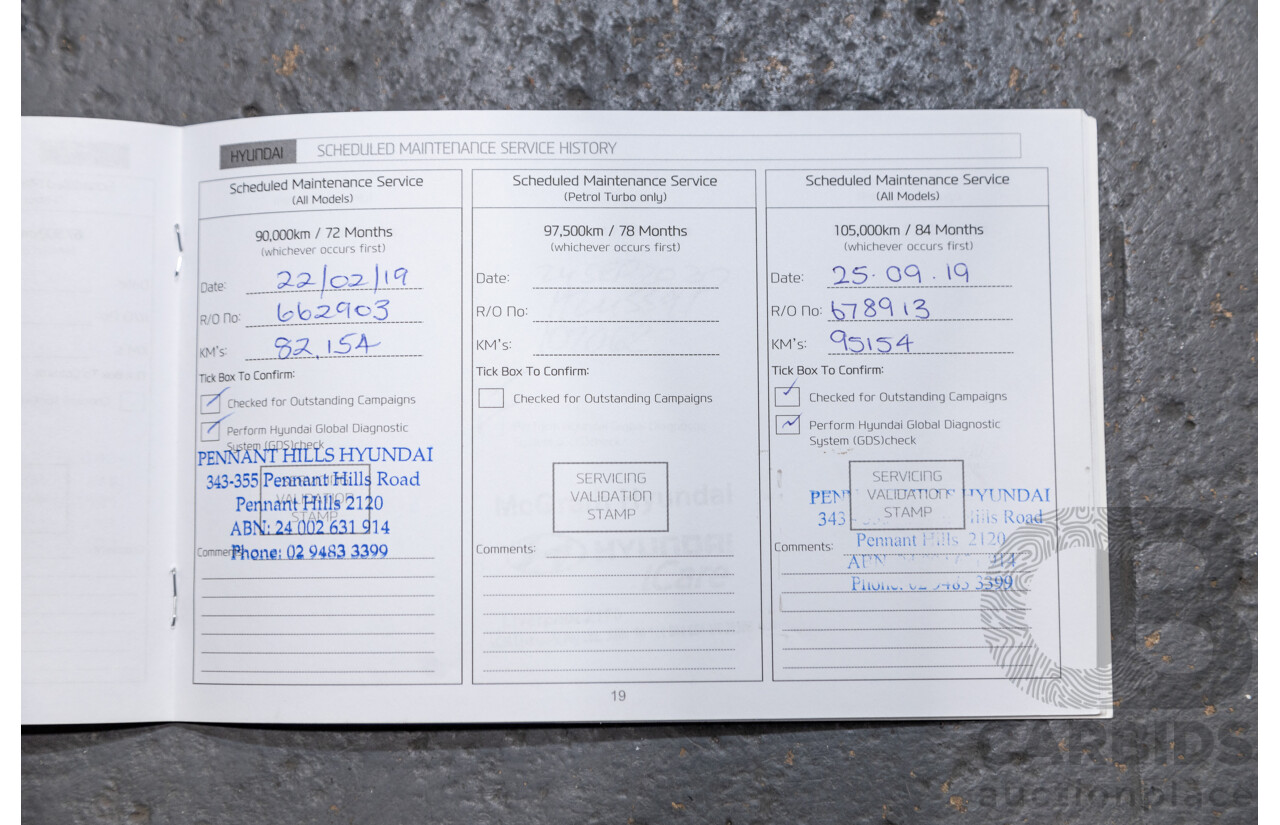 HYUNDAI SCHEDULED MAINTENANCE SERVICE HISTORY
Scheduled Maintenance Service
(All Models)
90,000km / 72 Months
(whichever occurs first)
Date: 22/02/19
R/O No: 662903
KM's: 82,154
Tick Box To Confirm:
Checked for Outstanding Campaigns
Perform Hyundai Global Diagnostic
System (GDS)check
PENNANT HILLS HYUNDAI
343-355 Pennant Hills Road
Pennant Hills 2120
ABN: 24 002 631 914
Phone: 02 9483 3399
SERVICING
VALIDATION
STAMP
Comments:
Scheduled Maintenance Service
(Petrol Turbo only)
97,500km / 78 Months
(whichever occurs first)
Date:
R/O No:
KM's:
Tick Box To Confirm:
Checked for Outstanding Campaigns
SERVICING
VALIDATION
STAMP
Comments:
Scheduled Maintenance Service
(All Models)
105,000km / 84 Months
(whichever occurs first)
Date: 25.09.19
R/O No: 678913
KM's: 95154
Tick Box To Confirm:
Checked for Outstanding Campaigns
Perform Hyundai Global Diagnostic
System (GDS)check
SERVICING
VALIDATION
STAMP
HYUNDAI
343 Hills Road
Pennant Hills 2120
Phone: 02 9483 3399
Comments:
19
CARBIDS
auctionplace